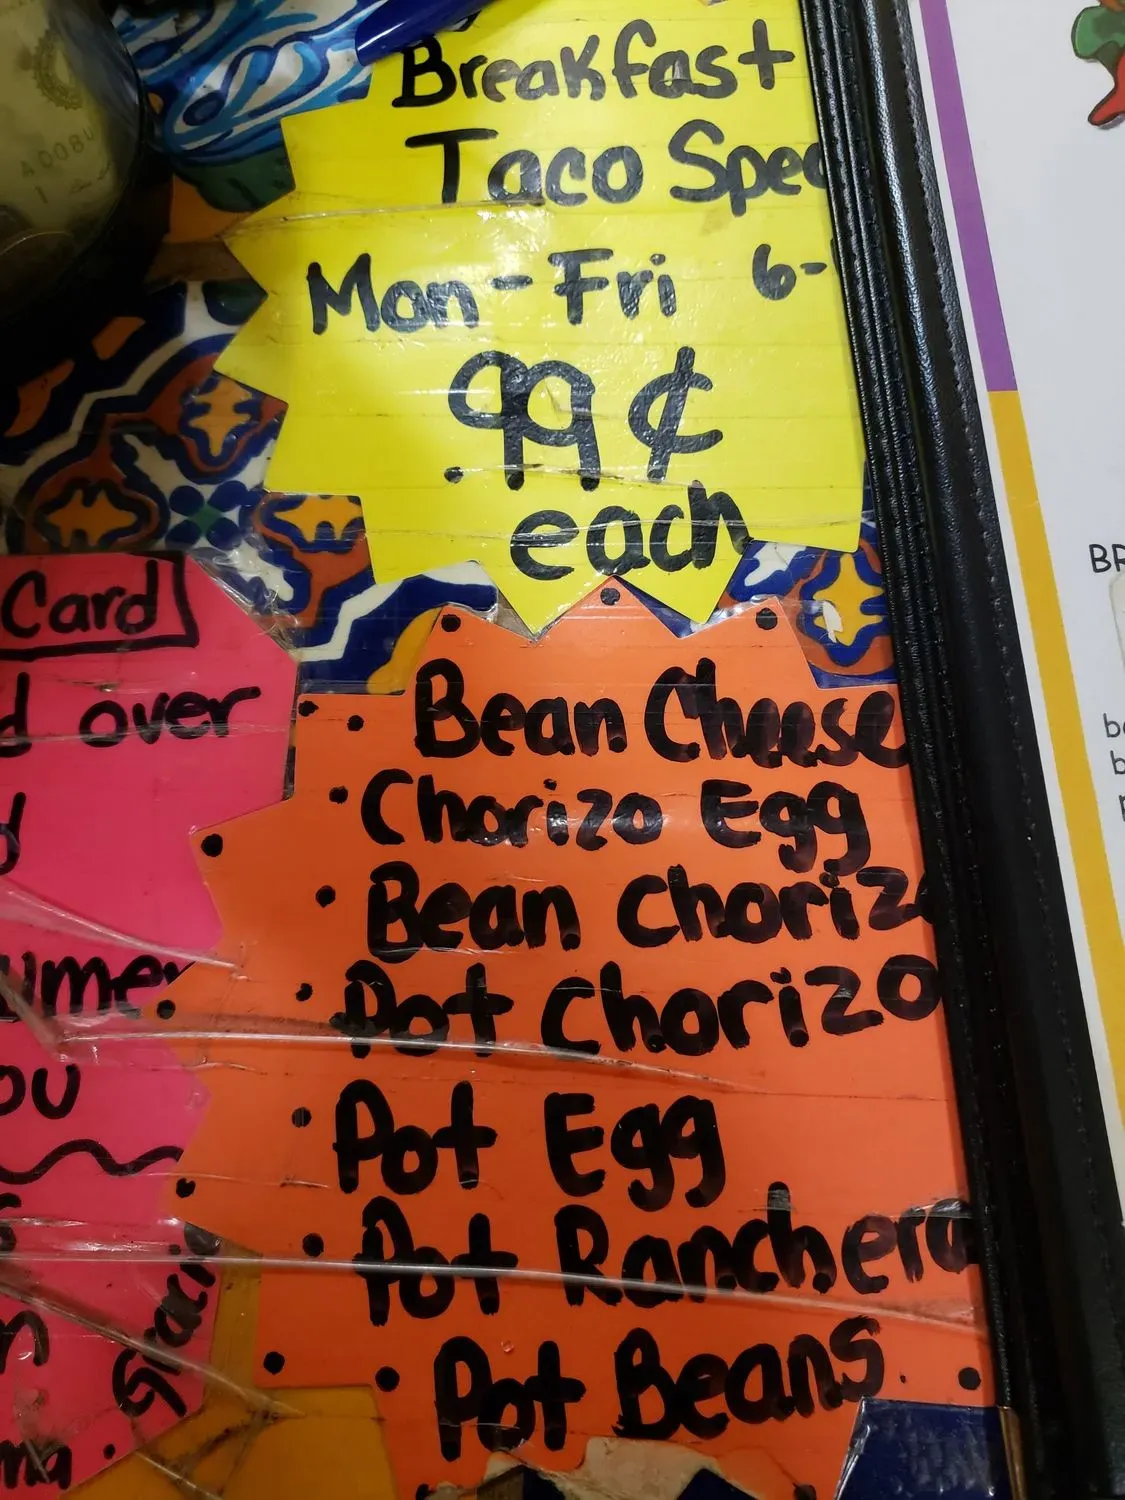 Breakfast
Taco Spec
Mon-Fri 6-
99¢
each
Card
d over
d
umer
ou
Gloria
Bean Cheese
Chorizo Egg
Bean Chorizo
Pot Chorizo
Pot Egg
Pot Ranchera
Pot Beans
A008
BR
b
b